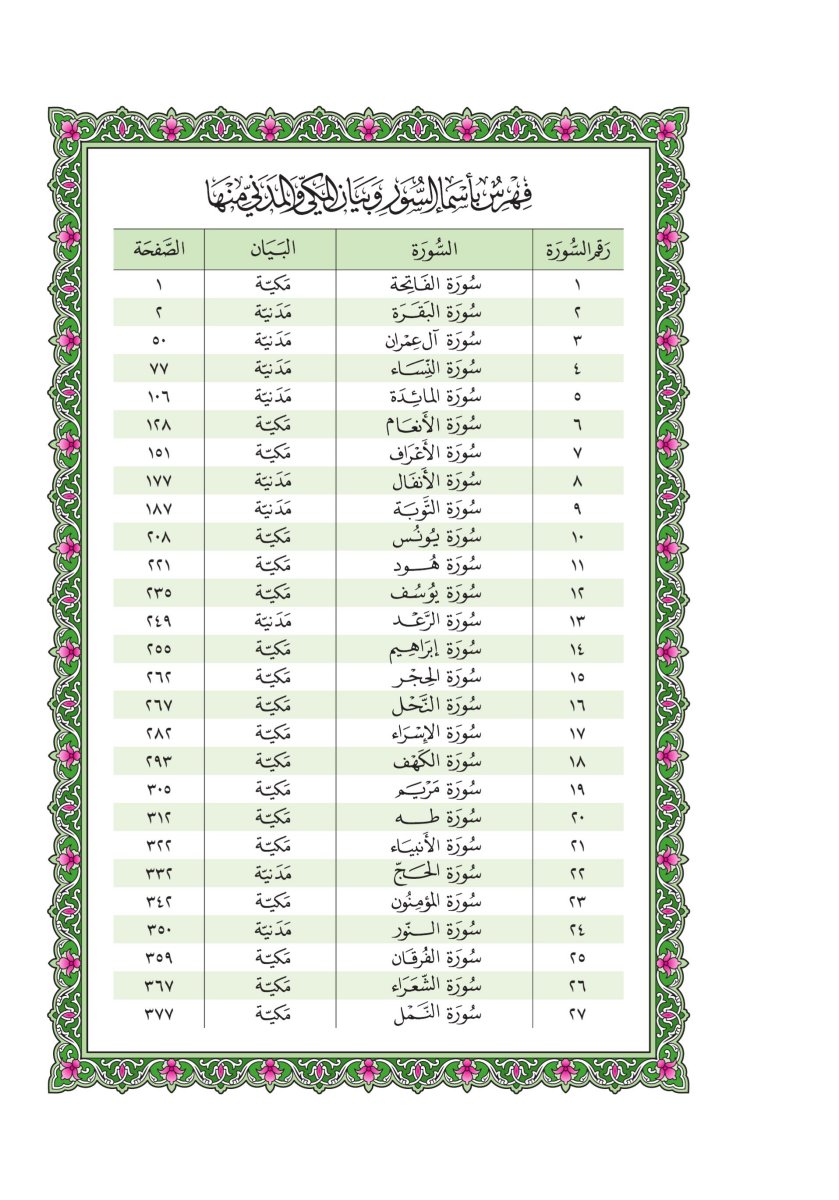 فِهْرِسٌ بِأَسْمَاءِ السُّوَرِ وَبَيَانِ المَكِّيِّ وَالمَدَنِيِّ مِنْهَا
رَقَم السُّورَة السُّورَة البَيَان الصَّفحَة
١ سُورَة الفَاتِحَة مَكيّة ١
٢ سُورَة البَقَرَة مَدَنيّة ٢
٣ سُورَة آل عِمْران مَدَنيّة ٥٠
٤ سُورَة النِّسَاء مَدَنيّة ٧٧
٥ سُورَة المائِدَة مَدَنيّة ١٠٦
٦ سُورَة الأَنعَام مَكيّة ١٢٨
٧ سُورَة الأَعْرَاف مَكيّة ١٥١
٨ سُورَة الأَنفَال مَدَنيّة ١٧٧
٩ سُورَة التَّوبَة مَدَنيّة ١٨٧
١٠ سُورَة يُونُس مَكيّة ٢٠٨
١١ سُورَة هُود مَكيّة ٢٢١
١٢ سُورَة يُوسُف مَكيّة ٢٣٥
١٣ سُورَة الرَّعْد مَدَنيّة ٢٤٩
١٤ سُورَة إبرَاهِيم مَكيّة ٢٥٥
١٥ سُورَة الحِجْر مَكيّة ٢٦٢
١٦ سُورَة النَّحْل مَكيّة ٢٦٧
١٧ سُورَة الإِسْرَاء مَكيّة ٢٨٢
١٨ سُورَة الكَهْف مَكيّة ٢٩٣
١٩ سُورَة مَرْيَم مَكيّة ٣٠٥
٢٠ سُورَة طه مَكيّة ٣١٢
٢١ سُورَة الأَنبيَاء مَكيّة ٣٢٢
٢٢ سُورَة الحَجّ مَدَنيّة ٣٣٢
٢٣ سُورَة المؤمِنُون مَكيّة ٣٤٢
٢٤ سُورَة النّور مَدَنيّة ٣٥٠
٢٥ سُورَة الفُرقَان مَكيّة ٣٥٩
٢٦ سُورَة الشّعَرَاء مَكيّة ٣٦٧
٢٧ سُورَة النَّمْل مَكيّة ٣٧٧